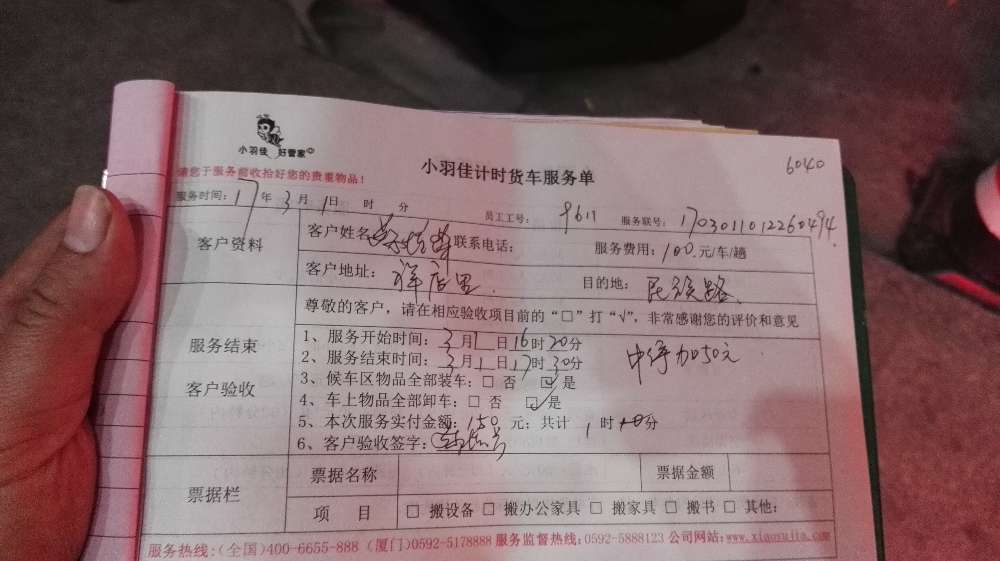 小羽佳 好管家
6040
小羽佳计时货车服务单
请您于服务前收拾好您的贵重物品！
服务时间：17年 3月 1日 时 分 员工工号： 服务联号：1703011012260494
客户资料
客户姓名 联系电话： 服务费用：100元/车/趟
客户地址：祥店里 目的地：民族路
服务结束
客户验收
尊敬的客户，请在相应验收项目前的“□”打“√”，非常感谢您的评价和意见
1、服务开始时间：3月1日16时20分
2、服务结束时间：3月1日17时30分
中停加50元
3、候车区物品全部装车：□ 否 ☑ 是
4、车上物品全部卸车：□ 否 ☑ 是
5、本次服务实付金额：150元；共计 1时10分
6、客户验收签字：
票据栏
票据名称 票据金额
项 目 □ 搬设备 □ 搬办公家具 □ 搬家具 □ 搬书 □ 其他：
服务热线：(全国)400-6655-888 (厦门)0592-5178888 服务监督热线：0592-5888123 公司网站：www.xiaoyujia.com